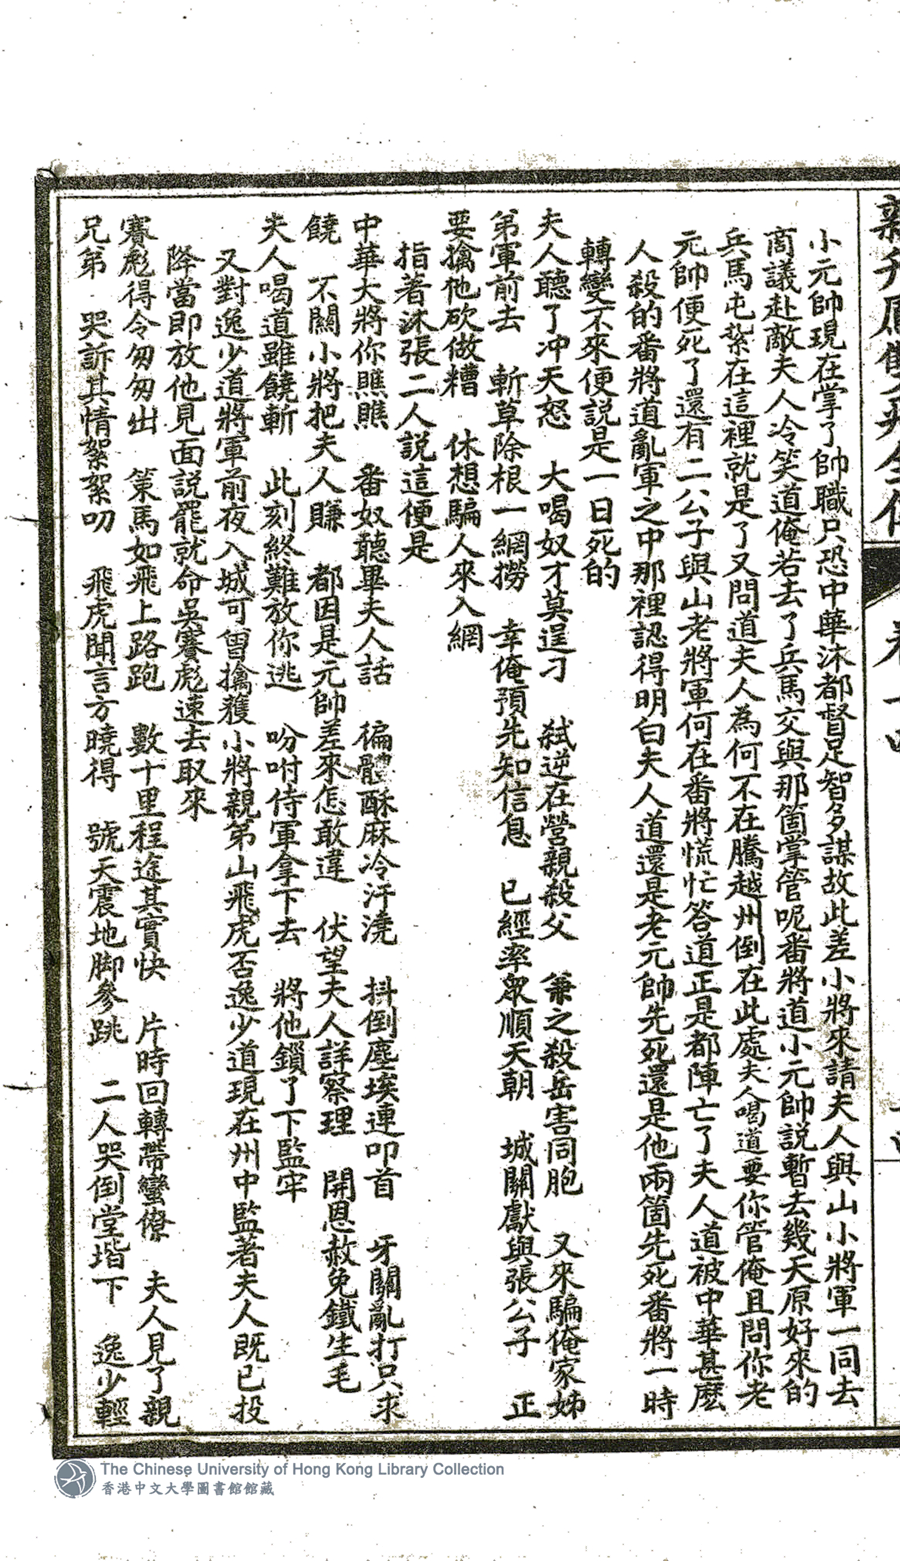 小元帥現在掌了帥職只恐中華沐都督足智多謀故此差小將來請夫人與山小將軍一同去
商議赴敵夫人冷笑道俺若去了兵馬交與那箇掌管呢番將道小元帥說暫去幾天原好來的
兵馬屯紥在這裡就是了又問道夫人為何不在騰越州倒在此處夫人喝道要你管俺且問你老
元帥便死了還有二公子與山老將軍何在番將慌忙答道正是都陣亡了夫人道被中華甚麽
人殺的番將道亂軍之中那裡認得明白夫人道還是老元帥先死還是他兩箇先死番將一時
轉變不來便說是一日死的
夫人聽了冲天怒　大喝奴才莫逞刁　弑逆在營親殺父　兼之殺岳害同胞　又來騙俺家姊
弟軍前去　斬草除根一網撈　幸俺預先知信息　已經率眾順天朝　城關獻與張公子　正
要擒他砍做糟　休想騙人來入網
指著沐張二人說這便是
中華大將你瞧瞧　番奴聽畢夫人話　徧體酥麻冷汗澆　抖倒塵埃連叩首　牙關亂打只求
饒　不關小將把夫人賺　都因是元帥差來怎敢違　伏望夫人詳察理　開恩赦免鐵生毛
夫人喝道雖饒斬　此刻終難放你逃　吩咐侍軍拿下去　將他鎖了下監牢
又對逸少道將軍前夜入城可曾擒獲小將親弟山飛虎否逸少道現在州中監著夫人既已投
降當即放他見面說罷就命吳賽彪速去取來
賽彪得令匆匆出　策馬如飛上路跑　數十里程途其實快　片時回轉帶蠻僚　夫人見了親
兄弟　哭訴其情絮絮叨　飛虎聞言方曉得　號天震地脚參跳　二人哭倒堂堦下　逸少輕
The Chinese University of Hong Kong Library Collection
香港中文大學圖書館館藏